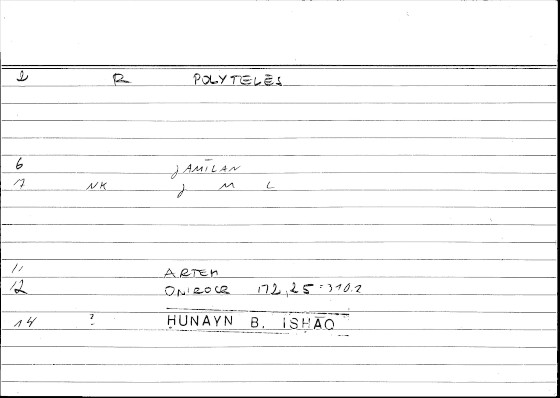 2 R POLYTELĒS
6 ǧAMĪLAN
7 NK ǧ M L
11 ARTEM
12 ONIROCR 172,25 = 310.2
14 ? ḤUNAYN B. ISḤĀQ